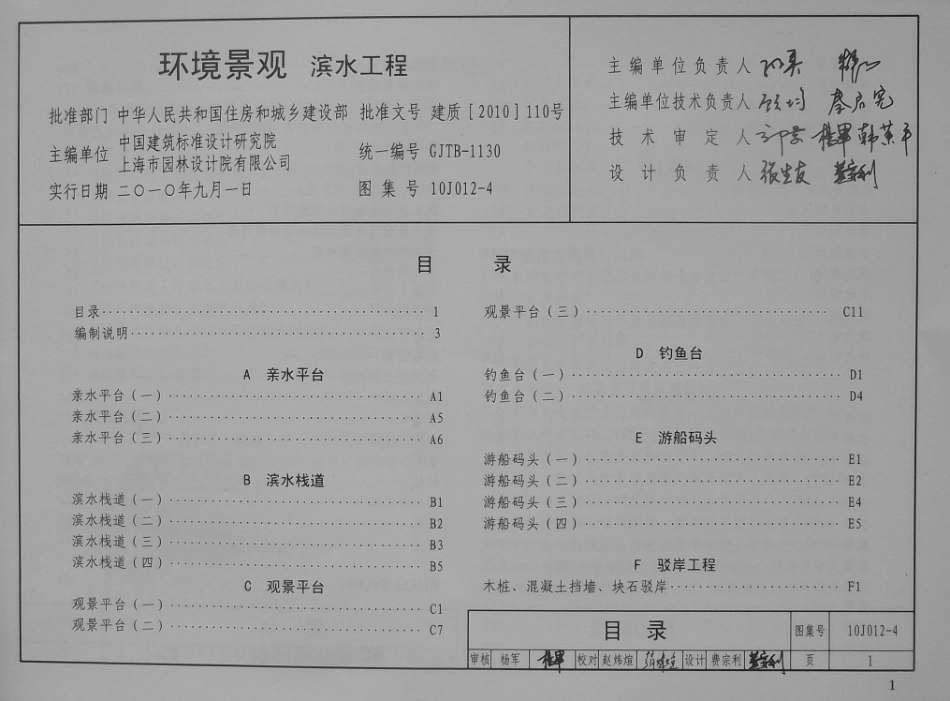 环境景观 滨水工程
批准部门 中华人民共和国住房和城乡建设部 批准文号 建质[2010]110号
主编单位 中国建筑标准设计研究院
上海市园林设计院有限公司
统一编号 GJTB-1130
实行日期 二〇一〇年九月一日 图集号 10J012-4
主编单位负责人
主编单位技术负责人
技术审定人
设计负责人
目 录
目录 1
编制说明 3
A 亲水平台
亲水平台(一) A1
亲水平台(二) A5
亲水平台(三) A6
B 滨水栈道
滨水栈道(一) B1
滨水栈道(二) B2
滨水栈道(三) B3
滨水栈道(四) B5
C 观景平台
观景平台(一) C1
观景平台(二) C7
观景平台(三) C11
D 钓鱼台
钓鱼台(一) D1
钓鱼台(二) D4
E 游船码头
游船码头(一) E1
游船码头(二) E2
游船码头(三) E4
游船码头(四) E5
F 驳岸工程
木桩、混凝土挡墙、块石驳岸 F1
目 录 图集号 10J012-4
审核 杨军 校对 赵炜煊 设计 费宗利 页 1
1